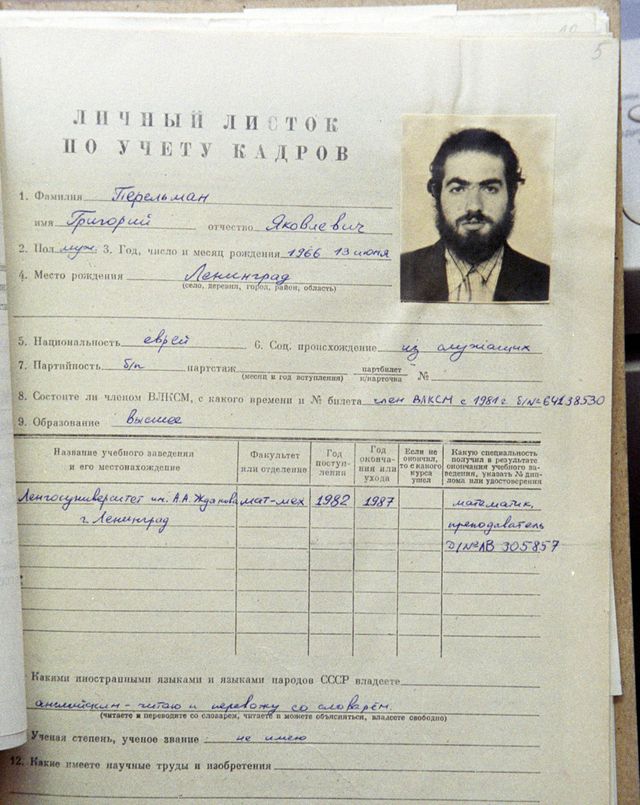 5
ЛИЧНЫЙ ЛИСТОК
ПО УЧЕТУ КАДРОВ
1. Фамилия Перельман
имя Григорий отчество Яковлевич
2. Пол муж. 3. Год, число и месяц рождения 1966 13 июня
4. Место рождения Ленинград
(село, деревня, город, район, область)
5. Национальность еврей 6. Соц. происхождение из служащих
7. Партийность б/п партстаж партбилет к/карточка №
(месяц и год вступления)
8. Состоите ли членом ВЛКСМ, с какого времени и № билета член ВЛКСМ с 1981 г б/№ 64138530
9. Образование высшее
Название учебного заведения и его местонахождение
Факультет или отделение
Год поступ- ления
Год оконча- ния или ухода
Если не окончил, то с какого курса ушел
Какую специальность получил в результате окончания учебного за- ведения, указать № дип- лома или удостоверения
Ленгосуниверситет им. А.А. Жданова мат-мех 1982 1987 математик,
г. Ленинград преподаватель
Д/№ АВ 305857
Какими иностранными языками и языками народов СССР владеете
английский - читаю и перевожу со словарём.
(читаете и переводите со словарем, читаете и можете объясняться, владеете свободно)
Ученая степень, ученое звание не имею
12. Какие имеете научные труды и изобретения